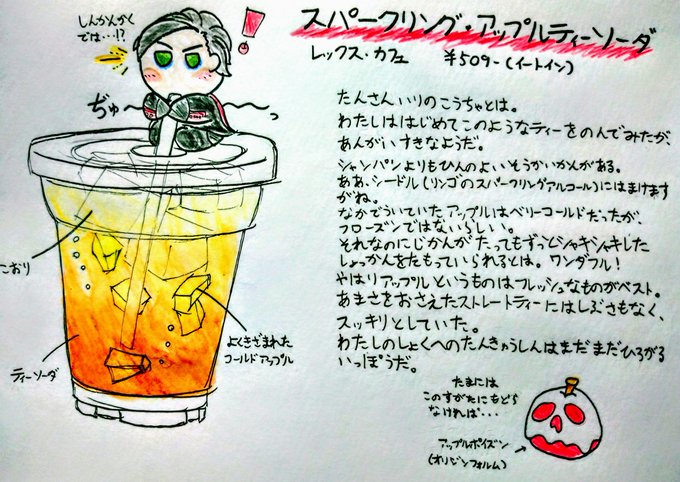 スパークリング・アップルティーソーダ
レックス・カフェ ￥509-(イートイン)
しんかんかく
では・・・!?
ぢゅー
っ
たんさんいりのこうちゃとは。
わたしははじめてこのようなティーをのんでみたが、
あんがいすきなようだ。
シャンパンよりもひんのよいそうかいかんがある。
ああ、シードル(リンゴのスパークリングアルコール)にはまけます
がね。
なかでういていたアップルはベリーコールドだったが、
フローズンではないらしい。
それなのにじかんがたってもずっとシャキシャキした
しょっかんをたもっていられるとは。ワンダフル!
やはりアップルというものはフレッシュなものがベスト。
あまさをおさえたストレートティーにはしぶさもなく、
スッキリとしていた。
わたしのしょくへのたんきゅうしんはまだまだひろがる
いっぽうだ。
こおり
ティーソーダ
よくきざまれた
コールドアップル
たまには
このすがたにもどら
なければ・・・
アップルポイズン
(オリジンフォルム)